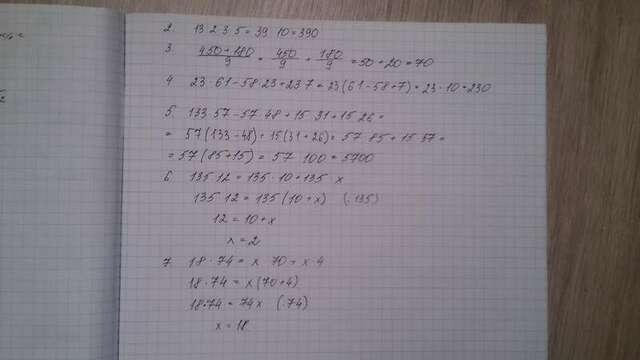 2. 13 2 3 5 = 39 · 10 = 390
3. (450 + 180)/9 = 450/9 + 180/9 = 50 + 20 = 70
4 23 · 61 - 58 · 23 + 23 · 7 = 23 (61 - 58 + 7) = 23 · 10 = 230
5. 133 · 57 - 57 · 48 + 15 · 31 + 15 · 26 =
= 57 (133 - 48) + 15 (31 + 26) = 57 · 85 + 15 · 57 =
= 57 (85 + 15) = 57 · 100 = 5700
6 135 · 12 = 135 · 10 + 135 · x
135 · 12 = 135 (10 + x) (: 135)
12 = 10 + x
x = 2
7. 18 · 74 = x · 70 + x · 4
18 · 74 = x (70 + 4)
18 · 74 = 74x (: 74)
x = 18